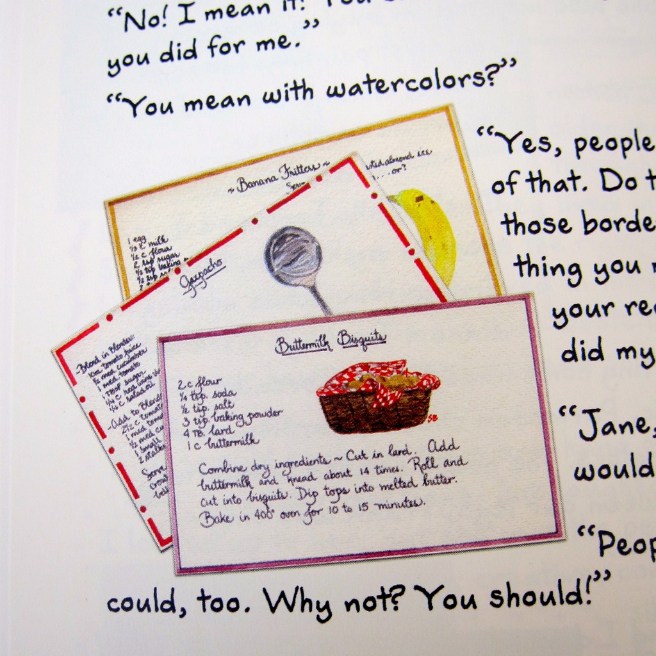 “No! I mean it! You
you did for me.”
“You mean with watercolors?”
“Yes, people
of that. Do
those borde
thing you
your re
did my
“Jane,
would
“Peop
could, too. Why not? You should!”
~ Banana Fritters ~
1 egg
⅓ c milk
½ c flour
2 tsp sugar
Gazpacho
Blend in Blender:
1 med tomato
1 TBSP sugar
Add to Blender
Buttermilk Bisquits
2 c flour
¼ tsp. soda
½ tsp. salt
3 tsp. baking powder
4 TB. lard
1 c buttermilk
SB
Combine dry ingredients ~ Cut in lard. Add
buttermilk and knead about 14 times. Roll and
cut into bisquits. Dip tops into melted butter.
Bake in 400° oven for 10 to 15 minutes.